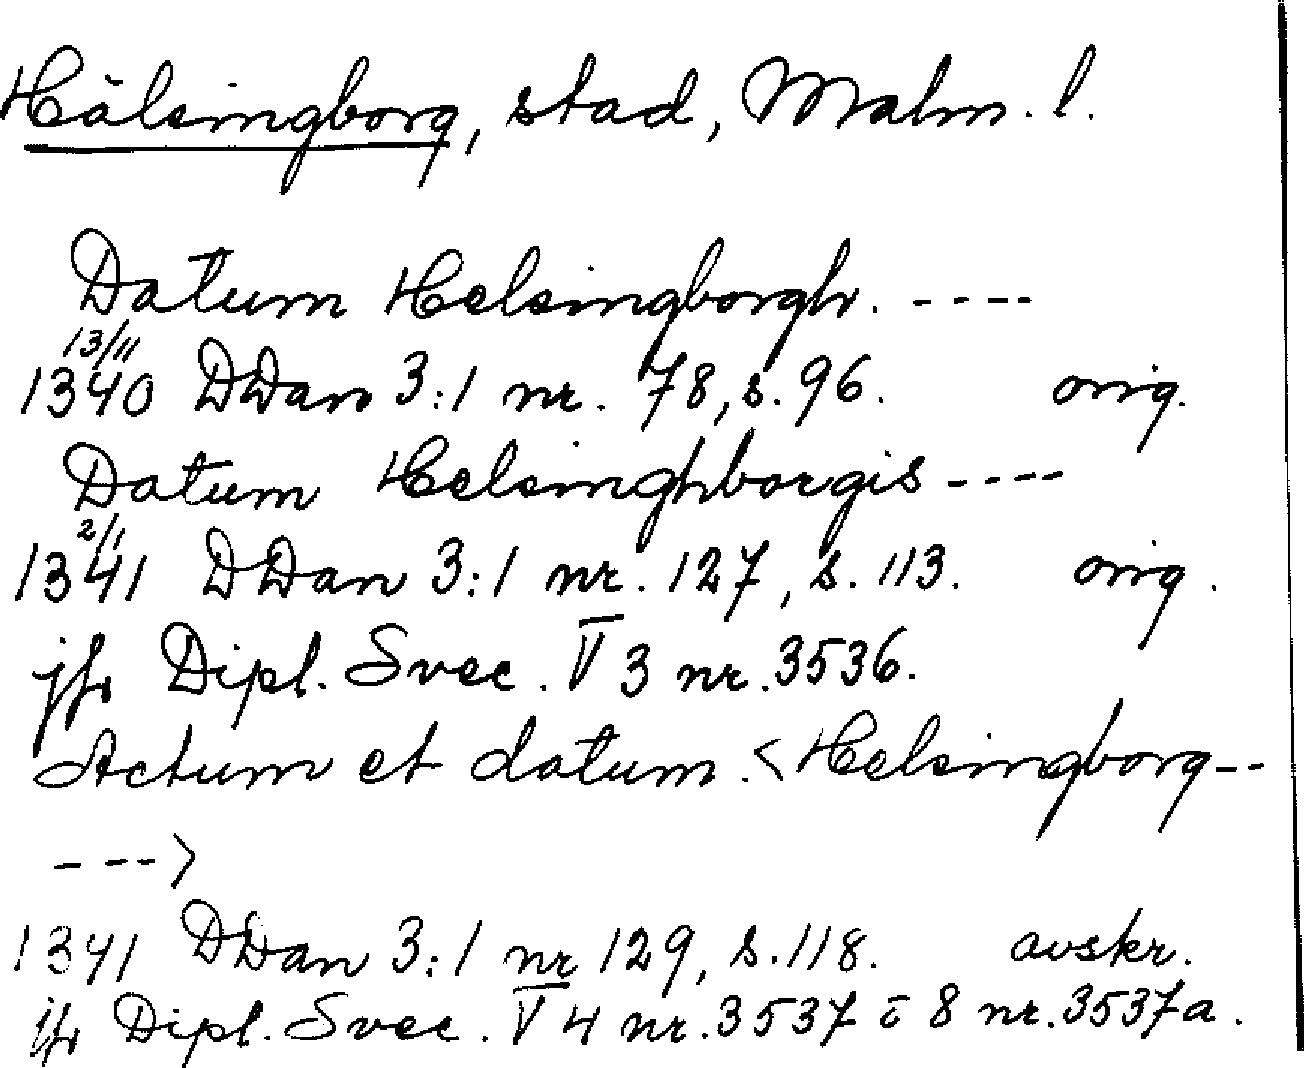 Hälsingborg, stad, Malm. l.
Datum Helsingborgh. ----
13/11
1340 DDan 3:1 nr. 78, s. 96. orig.
Datum Helsinghborgis ----
2/1
1341 DDan 3:1 nr. 127, s. 113. orig.
jfr Dipl. Svec. V 3 nr. 3536.
Actum et datum. <Helsingborg--
----->
1341 DDan 3:1 nr 129, s. 118. avskr.
jfr Dipl. Svec. V 4 nr. 3537 o 8 nr. 3537a.